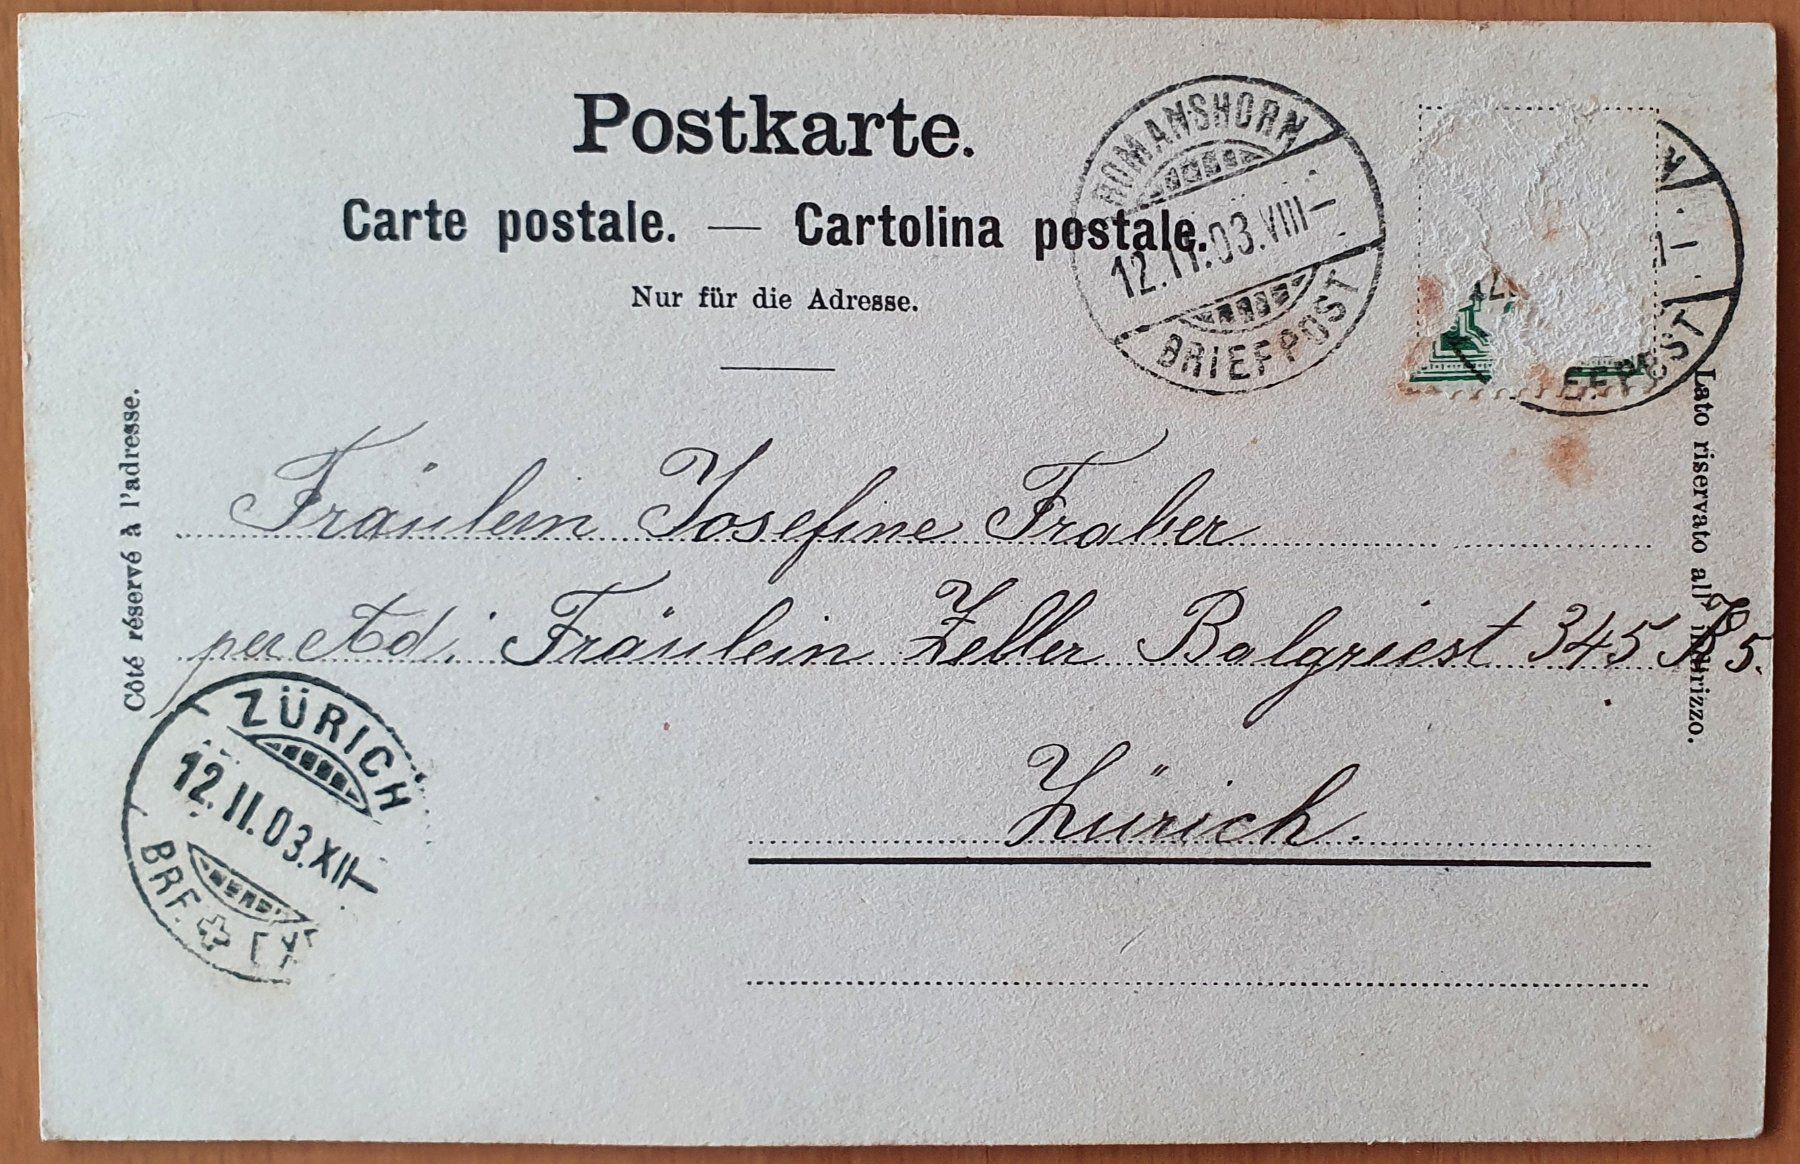 Postkarte.
Carte postale. — Cartolina postale.
Nur für die Adresse.
ROMANSHORN
12.II.03.VIII—
BRIEFPOST
N
EFPOST
Côté réservé à l'adresse.
Lato riservato all' indirizzo.
Fräulein Josefine Fraber
per Ad. Fräulein Zeller Balgriest 345 K5.
Zürich.
ZÜRICH
12.II.03.XII—
BRF.